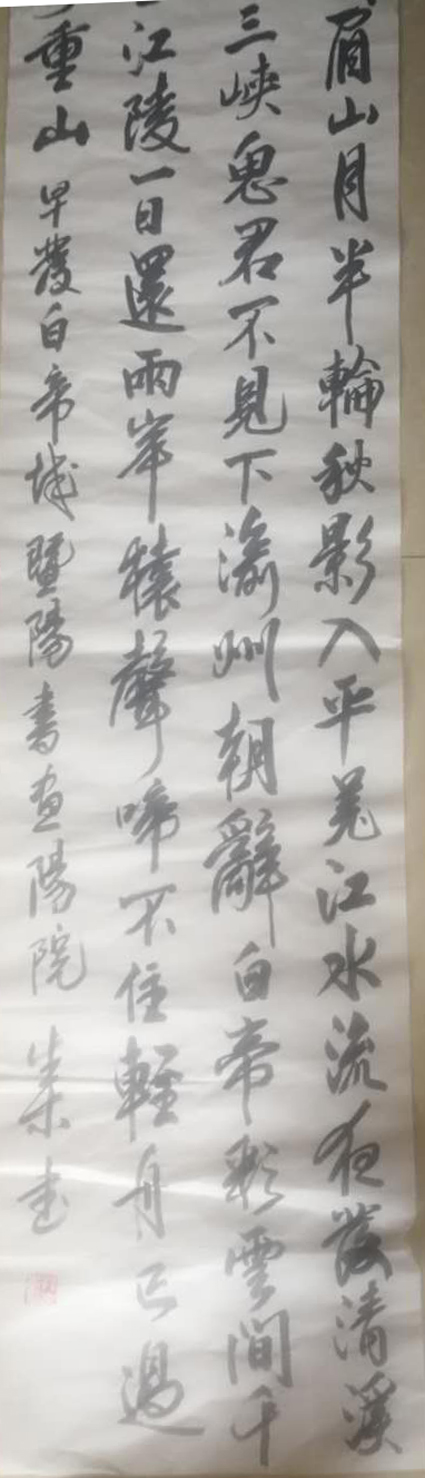 眉山月半輪秋影入平羌江水流夜發清溪
三峽思君不見下渝州朝辭白帝彩雲間千
江陵一日還兩岸猿聲啼不住輕舟已過
重山早發白帝城暨陽書画陽院朱書